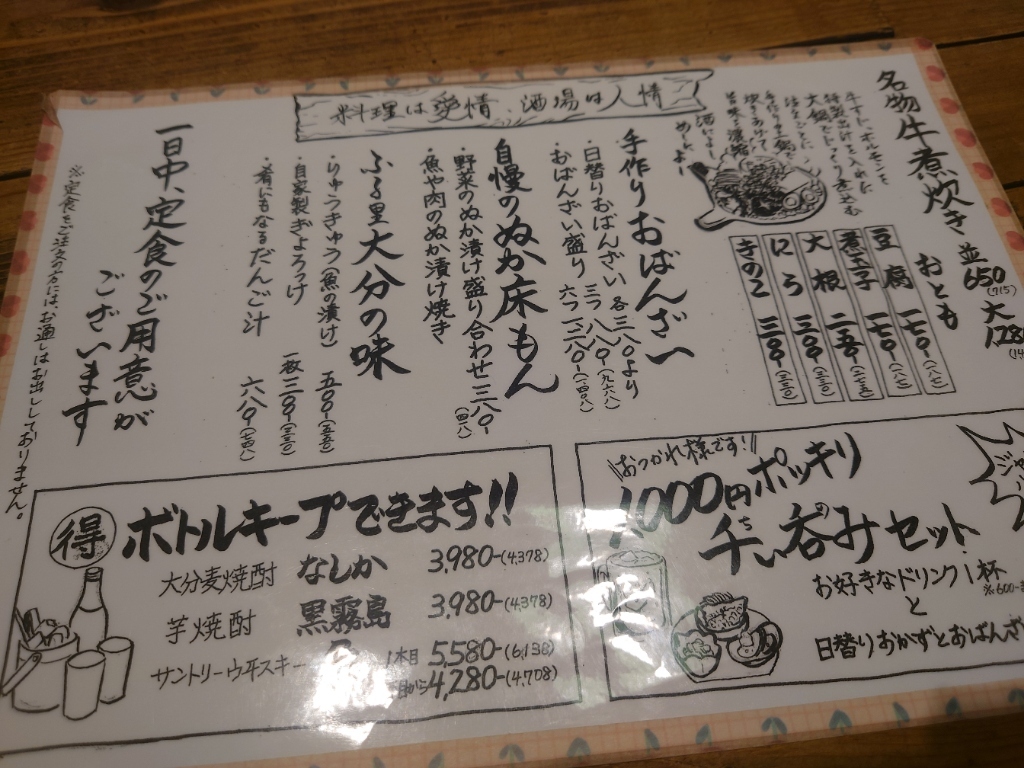 料理は愛情、酒場は人情
名物牛煮炊き 並 650 (715) 大
おとも
豆腐 一七〇- (一八七)
煮玉子 一七〇- (一八七)
大根 二五〇- (二七五)
にら 三〇〇- (三三〇)
きのこ 三〇〇- (三三〇)
手作りおばんざい
・日替りおばんざい 各三八〇より
・おばんざい盛り 三つ 八八〇-(九六八)
六つ 一二八〇-(一四〇八)
自慢のぬか床もん
・野菜のぬか漬け盛り合わせ 三八〇-(四一八)
・魚や肉のぬか漬け焼き
ふる里大分の味
・りゅうきゅう(魚の漬け) 五〇〇-(五五〇)
・自家製ぎょろっけ 一枚三〇〇-(三三〇)
・肴にもなるだんご汁 六八〇-(七四八)
一日中、定食のご用意が
ございます
※定食をご注文の方にはお通しはお出ししておりません。
得 ボトルキープできます!!
大分麦焼酎 なしか 3,980-(4,378)
芋焼酎 黒霧島 3,980-(4,378)
サントリーウヰスキー 1本目 5,580-(6,138)
目から 4,280-(4,708)
おつかれ様です!
1,000円ポッキリ
千ょい呑みセット
お好きなドリンク1杯
と
日替りおかずとおばんざ